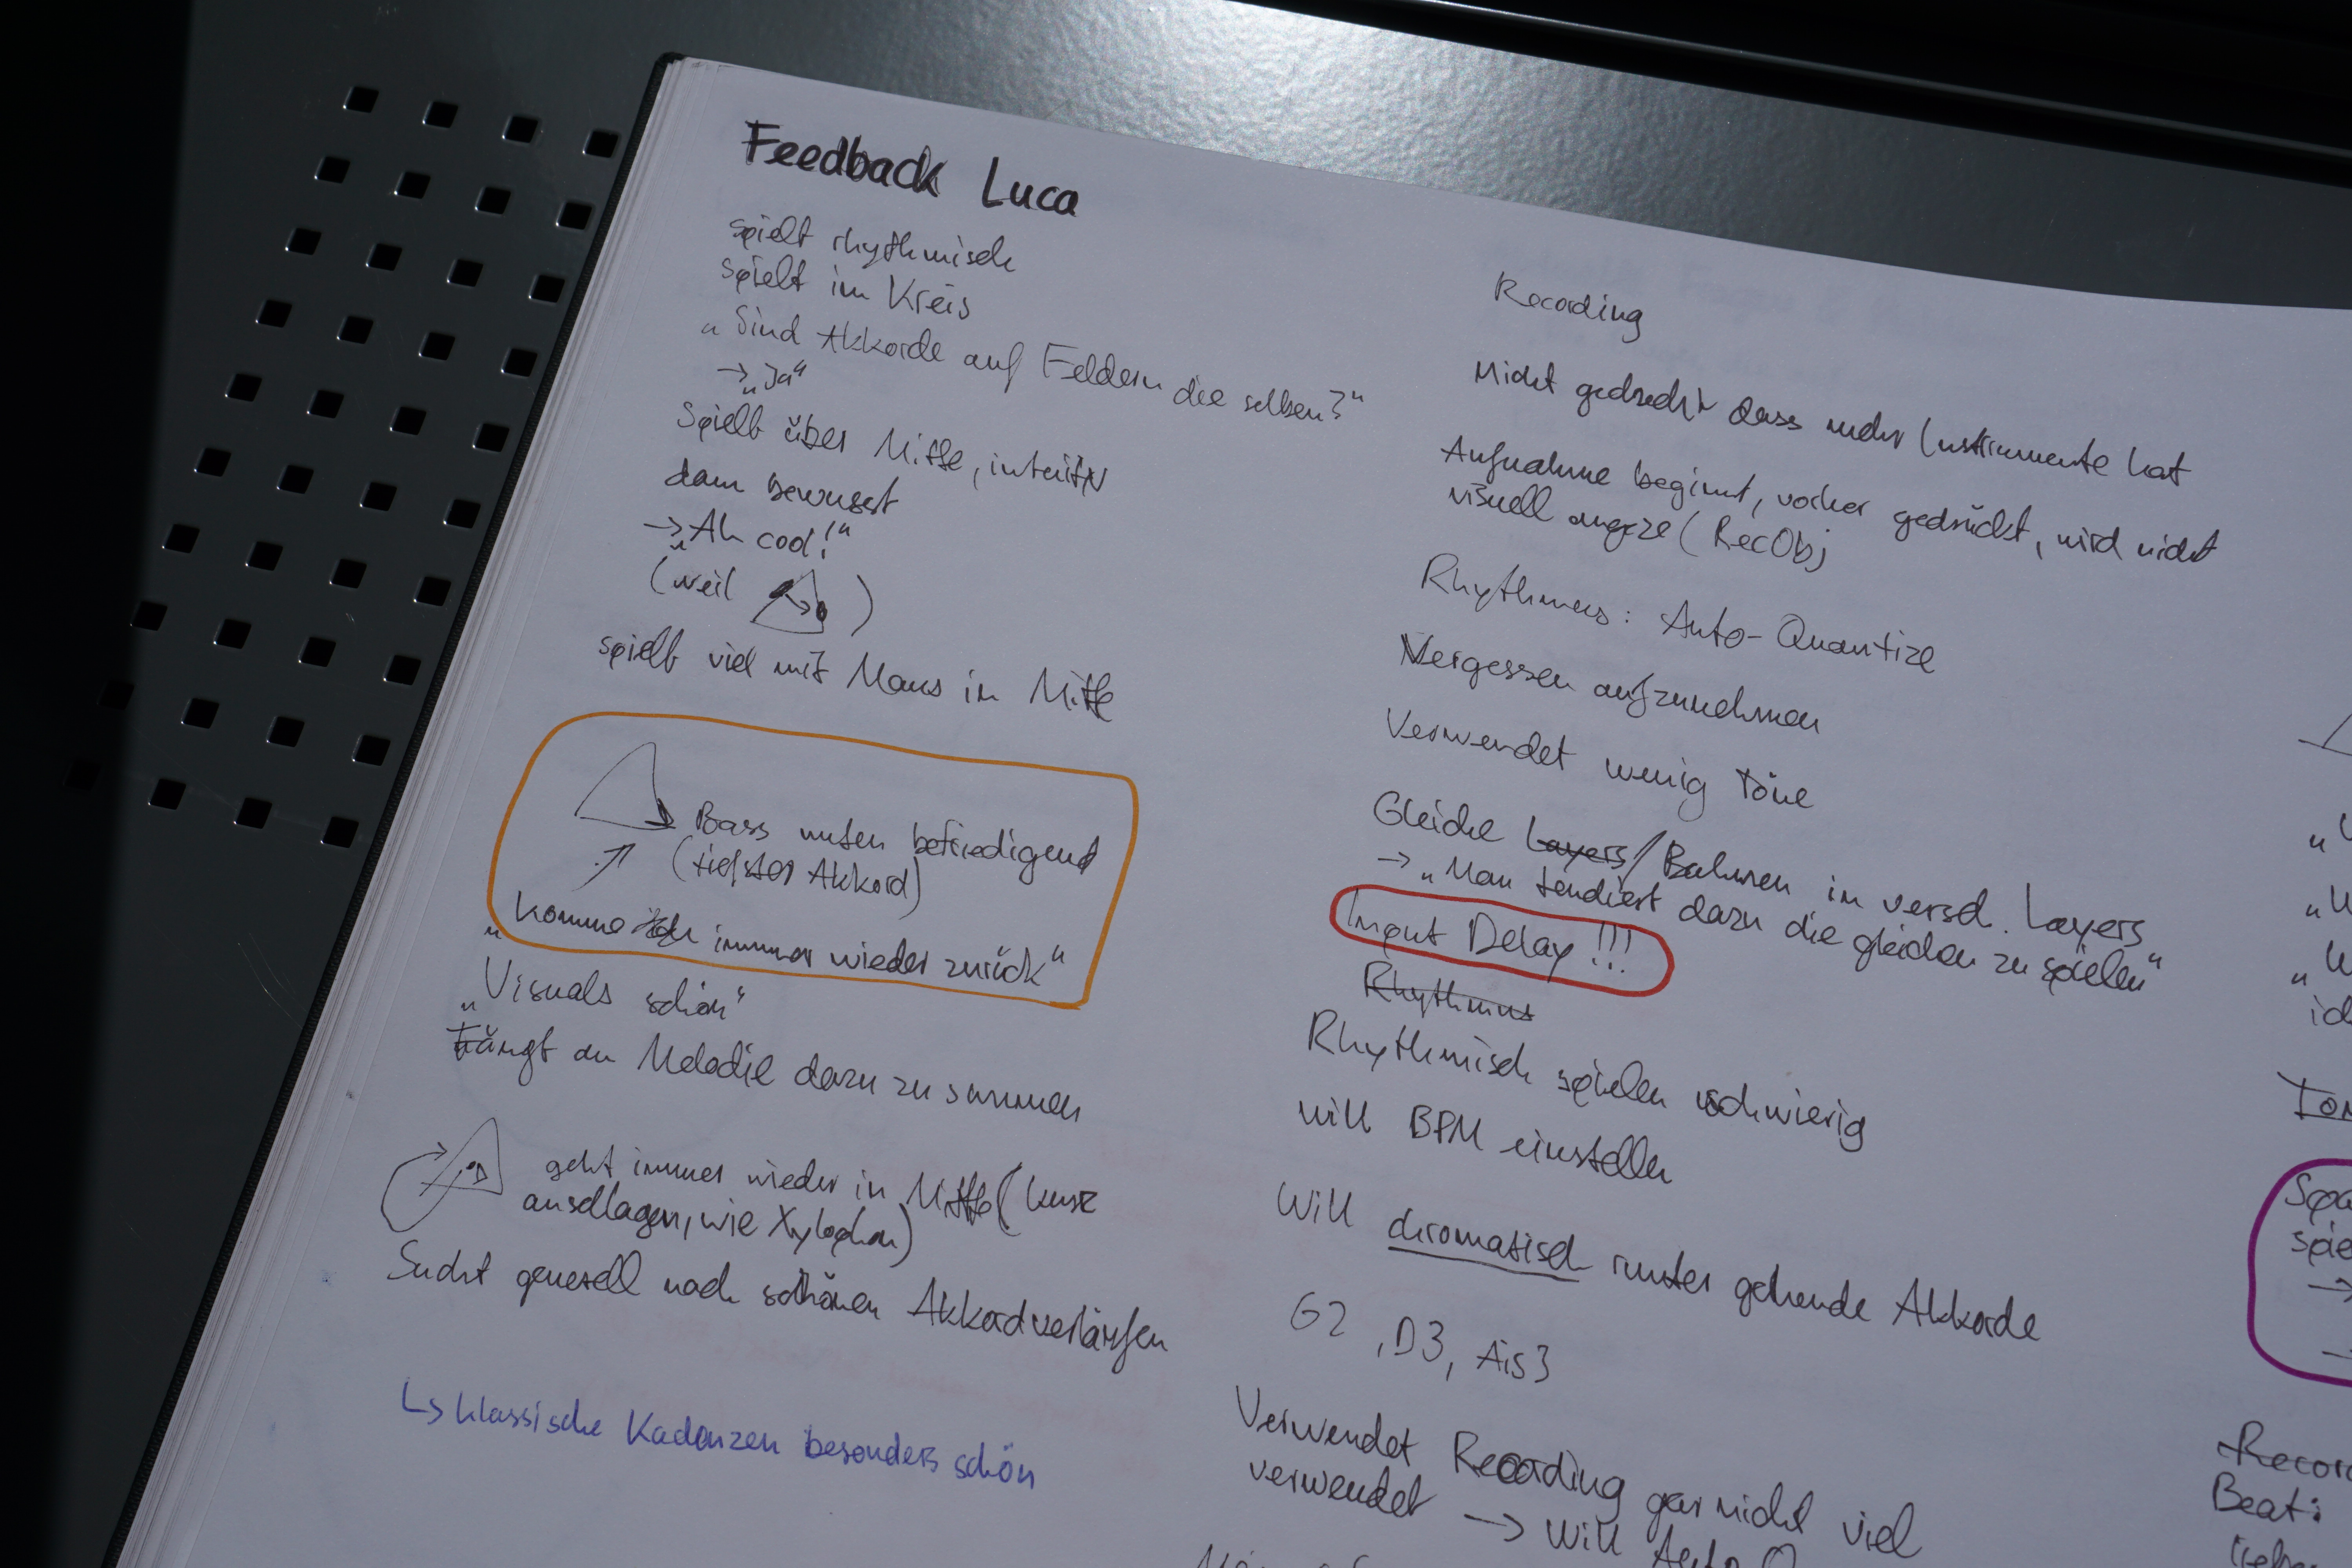 Feedback Luca
spielt rhythmisch
spielt im Kreis
„Sind Akkorde auf Feldern die selben?“
→ „Ja“
Spielt über Mitte, intuitiv
dann bewusst
→ „Ah cool!“
(weil )
spielt viel mit Maus in Mitte
Bass unten befriedigend
(tiefster Akkord)
„Komme ich immer wieder zurück“
„Visuals schön“
Fängt an Melodie dazu zu summen
geht immer wieder in Mitte (kurz
anschlagen, wie Xylophon)
Sucht generell nach schönen Akkordverläufen
↳ klassische Kadenzen besonders schön
Recording
Nicht gedacht dass mehr Instrumente hat
Aufnahme beginnt, vorher gedrückt, wird nicht
visuell (RecObj
Rhythmus: Auto-Quantize
Vergessen aufzunehmen
Verwendet wenig Töne
Gleiche Layers/Bahnen in versch. Layers
→ „Man tendiert dazu die gleichen zu spielen“
Input Delay!!!
Rhythmus
Rhythmisch spielen schwierig
will BPM einstellen
Will chromatisch runter gehende Akkorde
G2, D3, Ais3
Verwendet Recording gar nicht viel
verwendet → Will
Beat: